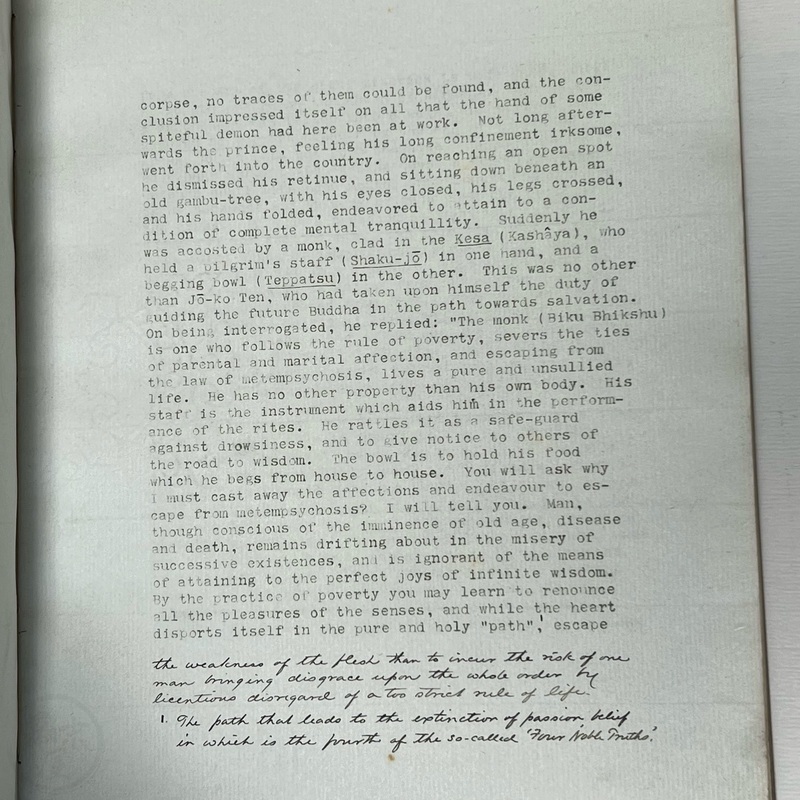 corpse, no traces of them could be found, and the con-
clusion impressed itself on all that the hand of some
spiteful demon had here been at work.  Not long after-
wards the prince, feeling his long confinement irksome,
went forth into the country.  On reaching an open spot
he dismissed his retinue, and sitting down beneath an
old gambu-tree, with his eyes closed, his legs crossed,
and his hands folded, endeavored to attain to a con-
dition of complete mental tranquillity.  Suddenly he
was accosted by a monk, clad in the Kesa (Kashâya), who
held a pilgrim's staff (Shaku-jō) in one hand, and a
begging bowl (Teppatsu) in the other.  This was no other
than Jō-ko Ten, who had taken upon himself the duty of
guiding the future Buddha in the path towards salvation.
On being interrogated, he replied: "The monk (Biku Bhikshu)
is one who follows the rule of poverty, severs the ties
of parental and marital affection, and escaping from
the law of metempsychosis, lives a pure and unsullied
life.  He has no other property than his own body.  His
staff is the instrument which aids him in the perform-
ance of the rites.  He rattles it as a safe-guard
against drowsiness, and to give notice to others of
the road to wisdom.  The bowl is to hold his food
which he begs from house to house.  You will ask why
I must cast away the affections and endeavour to es-
cape from metempsychosis?  I will tell you.  Man,
though conscious of the imminence of old age, disease
and death, remains drifting about in the misery of
successive existences, and is ignorant of the means
of attaining to the perfect joys of infinite wisdom.
By the practice of poverty you may learn to renounce
all the pleasures of the senses, and while the heart
disports itself in the pure and holy "path",¹ escape
the weakness of the flesh than to incur the risk of one
man bringing disgrace upon the whole order by
licentious disregard of a too strict rule of life.
1. The path that leads to the extinction of passion, belief
in which is the fourth of the so-called 'Four Noble Truths'.